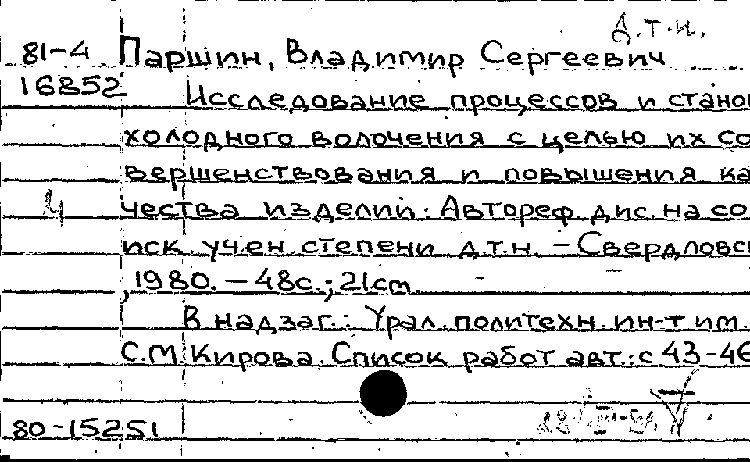 Д.т.н.
81-4 Паршин, Владимир Сергеевич
16852 Исследование процессов и стано
холодного волочения с целью их со
вершенствования и повышения ка
Ч чества изделий: Автореф. дис. на со
иск. учен. степени д.т.н. - Свердловс
, 1980. - 48с.; 21см
В надзаг.: Урал. политехн. ин-т им.
С.М. Кирова. Список работ авт.: с 43-46
80-15251